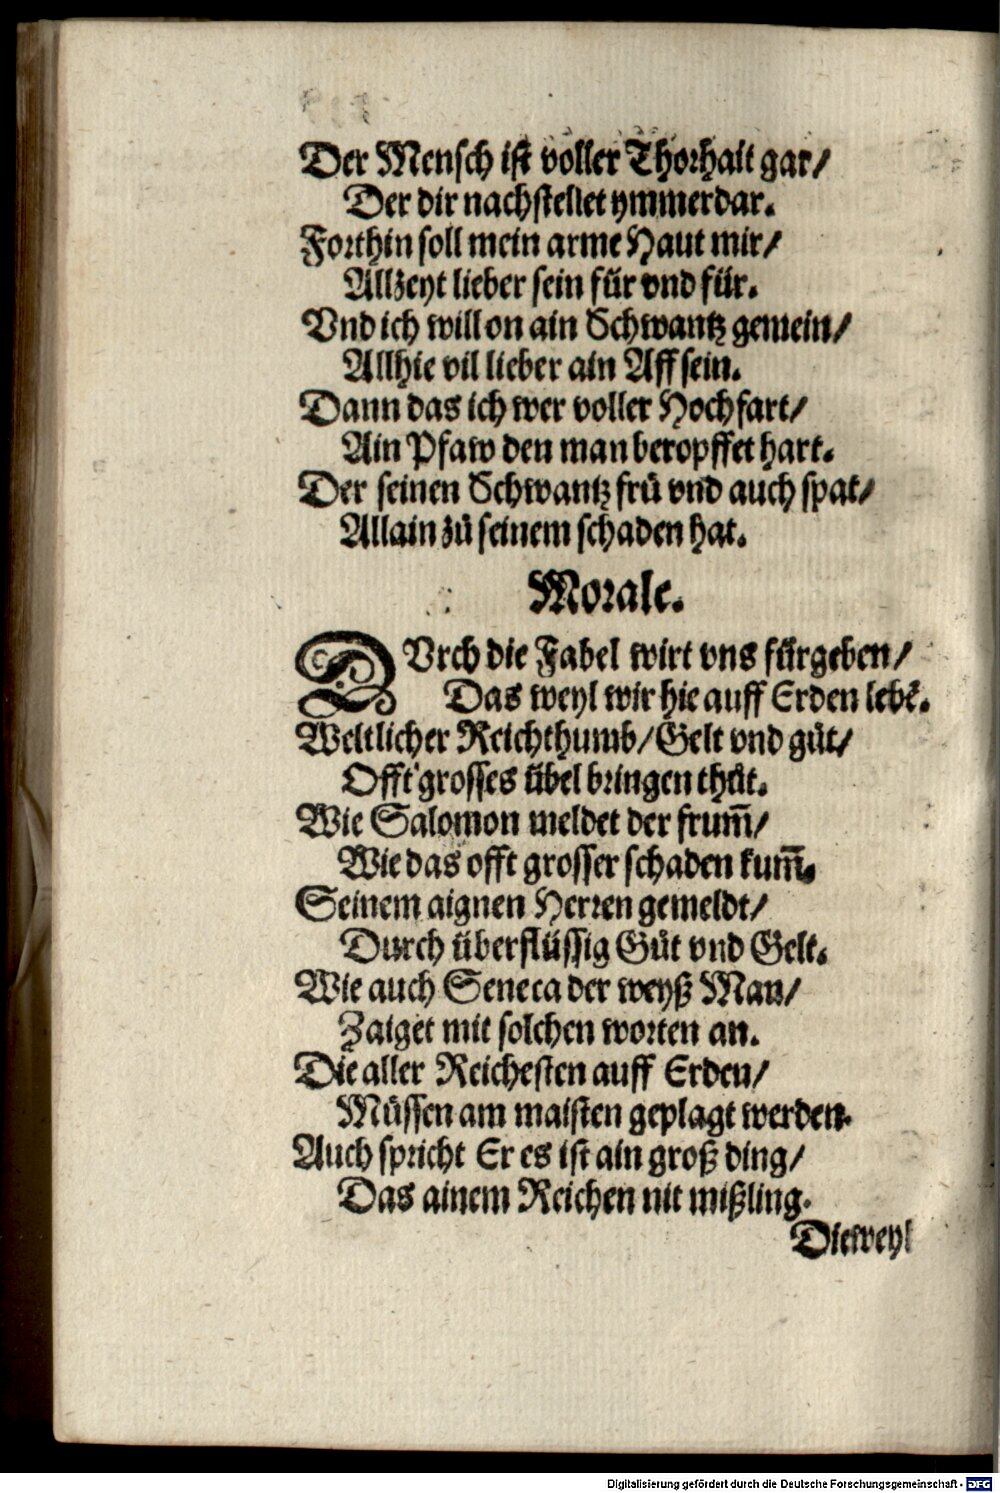 Der Mensch ist voller Thorhait gar/
Der dir nachstellet ymmerdar.
Forthin soll mein arme Haut mir/
Allzeyt lieber sein für vnd für.
Vnd ich will on ain Schwantz gemein/
Allhie vil lieber ain Aff sein.
Dann das ich wer voller Hochfart/
Ain Pfaw den man beropffet hart.
Der seinen Schwantz frü vnd auch spat/
Allain zů seinem schaden hat.
Morale.
DVrch die Fabel wirt vns fürgeben/
Das weyl wir hie auff Erden lebẽ.
Weltlicher Reichthumb/Gelt vnd gůt/
Offt grosses übel bringen thůt.
Wie Salomon meldet der frum̃/
Wie das offt grosser schaden kum̃.
Seinem aignen Herren gemeldt/
Durch überflüssig Gůt vnd Gelt.
Wie auch Seneca der weyß Man/
Zaiget mit solchen worten an.
Die aller Reichesten auff Erden/
Müssen am maisten geplagt werden.
Auch spricht Er es ist ain groß ding/
Das ainem Reichen nit mißling.
Dieweyl
Digitalisierung gefördert durch die Deutsche Forschungsgemeinschaft - DFG